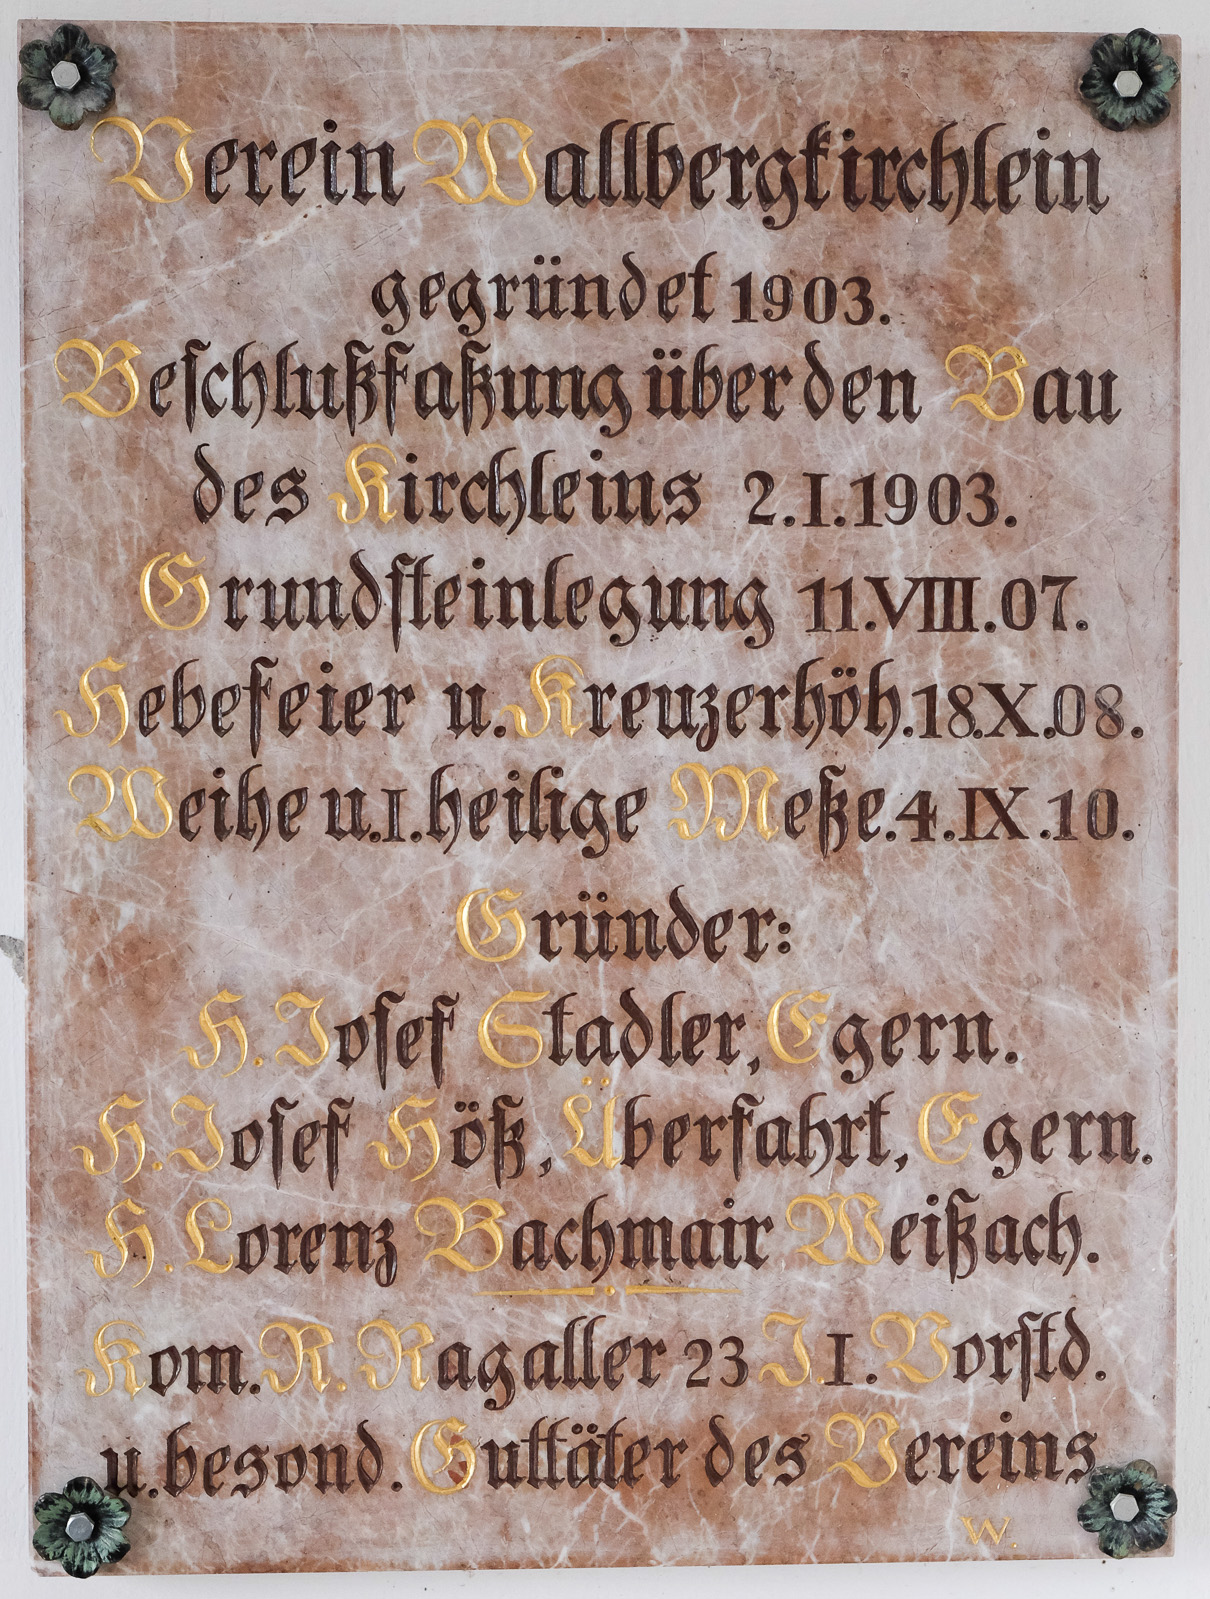 Verein Wallbergkirchlein
gegründet 1903.
Beschlußfaßung über den Bau
des Kirchleins 2.I.1903.
Grundsteinlegung 11.VIII.07.
Hebefeier u. Kreuzerhöh.18.X.08.
Weihe u.I.heilige Meße.4.IX.10.
Gründer:
H. Josef Stadler, Egern.
H. Josef Höß, Überfahrt, Egern.
H. Lorenz Bachmair Weißach.
Kom. R. Ragaller 23 J. I. Vorstd.
u. besond. Guttäter des Vereins
W.